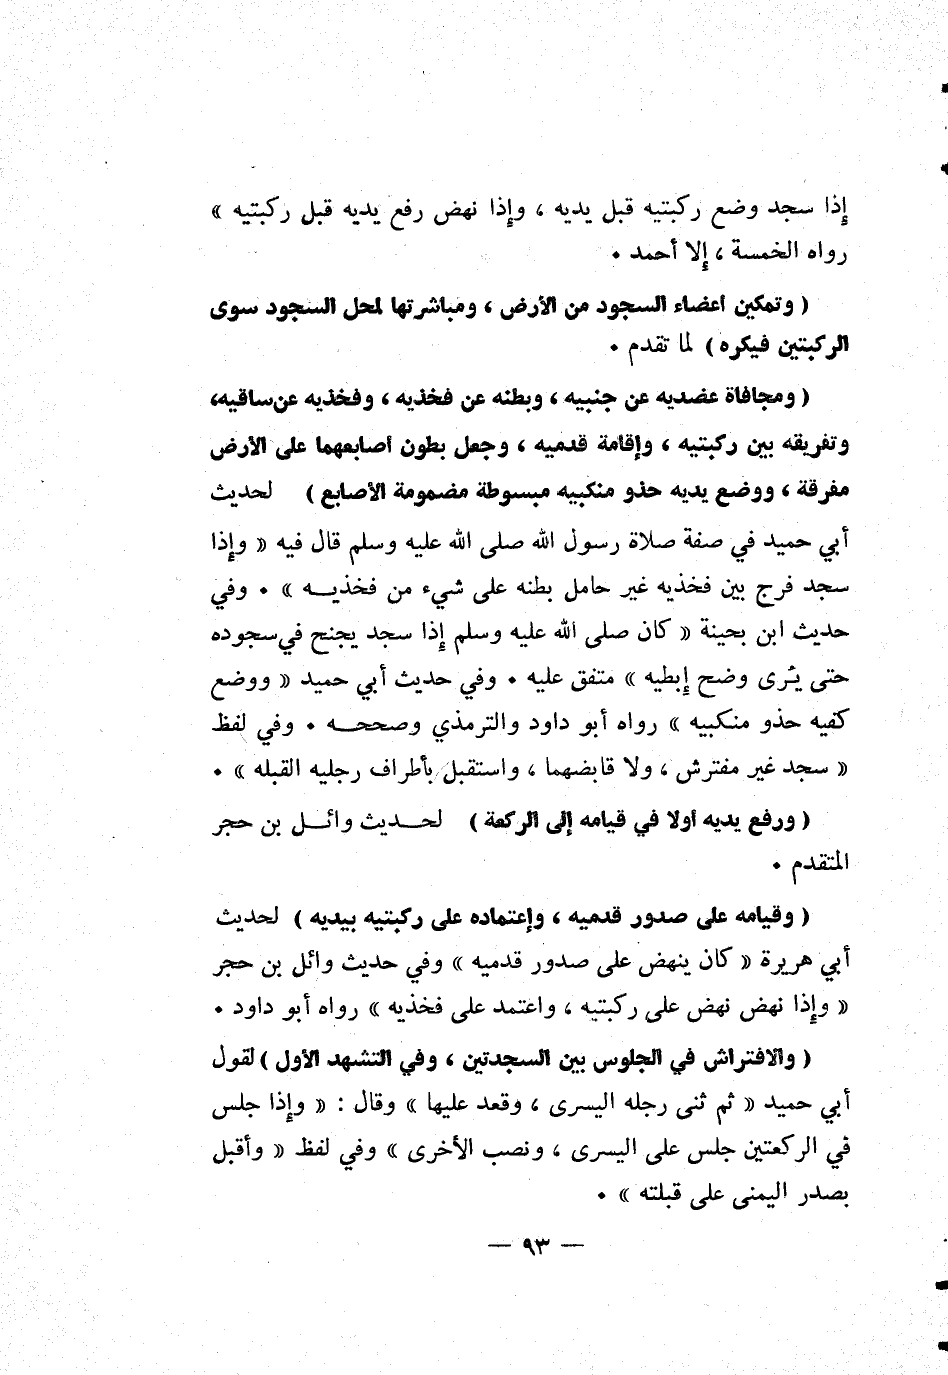 إذا سجد وضع ركبتيه قبل يديه ، وإذا نهض رفع يديه قبل ركبتيه »
رواه الخمسة ، إلا أحمد ٠
( وتمكين أعضاء السجود من الأرض ، ومباشرتها لمحل السجود سوى
الركبتين فيكره ) لما تقدم ٠
( ومجافاة عضديه عن جنبيه ، وبطنه عن فخذيه ، وفخذيه عن ساقيه،
وتفريقه بين ركبتيه ، وإقامة قدميه ، وجعل بطون أصابعهما على الأرض
مفرقة ، ووضع يديه حذو منكبيه مبسوطة مضمومة الأصابع ) لحديث
أبي حميد في صفة صلاة رسول الله صلى الله عليه وسلم قال فيه « وإذا
سجد فرج بين فخذيه غير حامل بطنه على شيء من فخذيــه » ٠ وفي
حديث ابن بحينة « كان صلى الله عليه وسلم إذا سجد يجنح في سجوده
حتى يُرى وضح إبطيه » متفق عليه ٠ وفي حديث أبي حميد « ووضع
كفيه حذو منكبيه » رواه أبو داود والترمذي وصححــه ٠ وفي لفظ
« سجد غير مفترش ، ولا قابضهما ، واستقبل بأطراف رجليه القبله » ٠
( ورفع يديه أولا في قيامه إلى الركعة ) لحــديث وائــل بن حجر
المتقدم ٠
( وقيامه على صدور قدميه ، وإعتماده على ركبتيه بيديه ) لحديث
أبي هريرة « كان ينهض على صدور قدميه » وفي حديث وائل بن حجر
« وإذا نهض نهض على ركبتيه ، واعتمد على فخذيه » رواه أبو داود ٠
( والافتراش في الجلوس بين السجدتين ، وفي التشهد الأول ) لقول
أبي حميد « ثم ثنى رجله اليسرى ، وقعد عليها » وقال : « وإذا جلس
في الركعتين جلس على اليسرى ، ونصب الأخرى » وفي لفظ « وأقبل
بصدر اليمنى على قبلته » ٠
— ٩٣ —